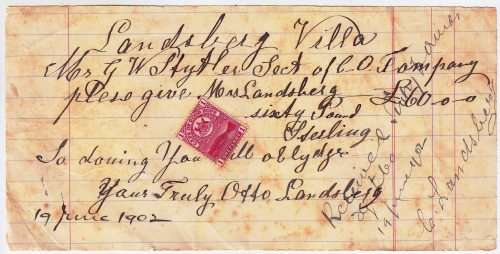 Landsberg Villa
Mr G W Stytler Sect of C O Company
plese give Mrs Landsberg £60 0 0
sixty Pound
Sterling
So doving You will oblydge
Yours Truly Otto Landsberg
19 June 1902
Received
£60
19 June 1902
C Landsberg